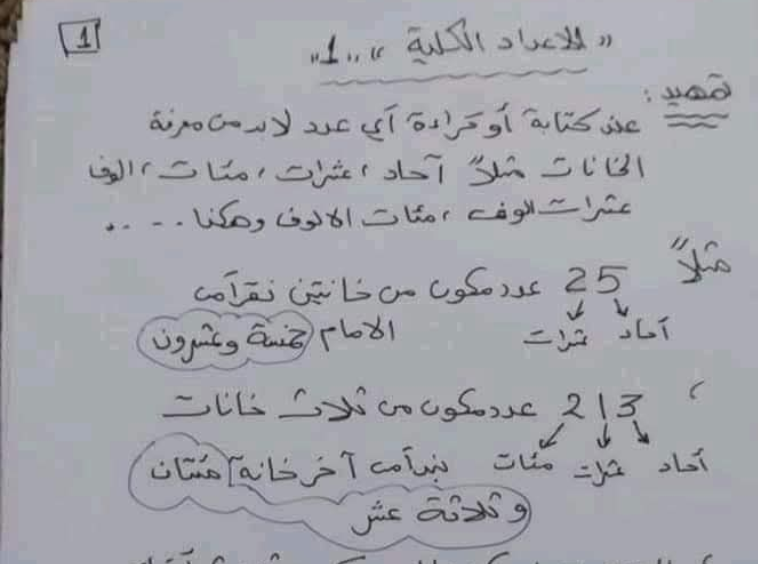 1
« الاعداد الكلية » "1"
تمهيد :
عند كتابة أو قراءة أي عدد لابد من معرفة
الخانات مثلاً آحاد ، عشرات ، مئات ، الوف
عشرات الوف ، مئات الالوف وهكذا ....
مثلاً 25 عدد مكون من خانتين نقرأ من
آحاد عشرات الامام خمسة وعشرون
، 213 عدد مكون من ثلاث خانات
أحاد عشرات مئات نبدأ من آخر خانة مئتان
وثلاثة عشر